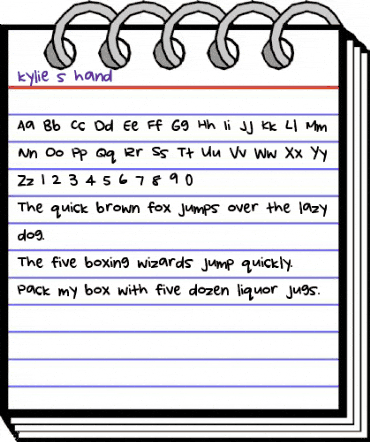 kylie s hand
Aa Bb Cc Dd Ee Ff Gg Hh Ii Jj Kk Ll Mm
Nn Oo Pp Qq Rr Ss Tt Uu Vv Ww Xx Yy
Zz 1 2 3 4 5 6 7 8 9 0
The quick brown fox jumps over the lazy
dog.
The five boxing wizards jump quickly.
Pack my box with five dozen liquor jugs.